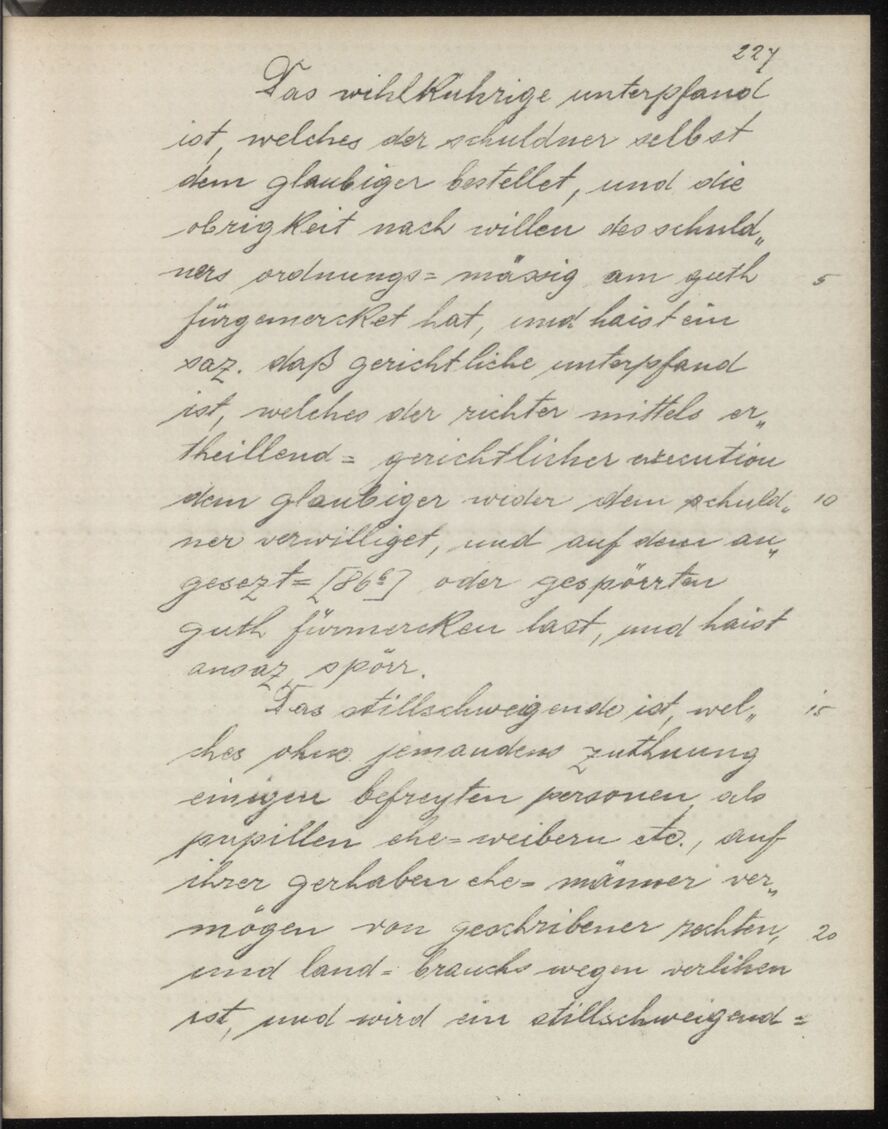 227
Das wihlkührige unterpfand
ist, welches der schuldner selbst
dem glaubiger bestellet, und die
obrigkeit nach willen des schuld„
ners ordnungs= mässig am guth 5
fürgemercket hat, und haist ein
saz. daß gerichtliche unterpfand
ist, welches der richter mittels er„
theillend= gerichtlicher execution
dem glaubiger wider dem schuld„ 10
ner verwilliget, und auf dem an„
gesezt= [86b] oder gespörrten
guth fürmercken last, und haist
ansaz, spörr.
Das stillschweigende ist, wel„ 15
ches ohne jemandens zuthuung
einigen befreyten personen, als
pupillen ehe=weibern etc., auf
ihrer gerhaben ehe= männer ver„
mögen von geschribener rechten, 20
und land= brauchs wegen verlihen
ist, und wird ein stillschweigend=